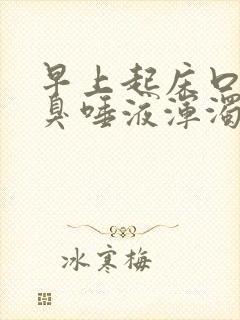 早上起床口
臭唾液浑浊
冰寒梅